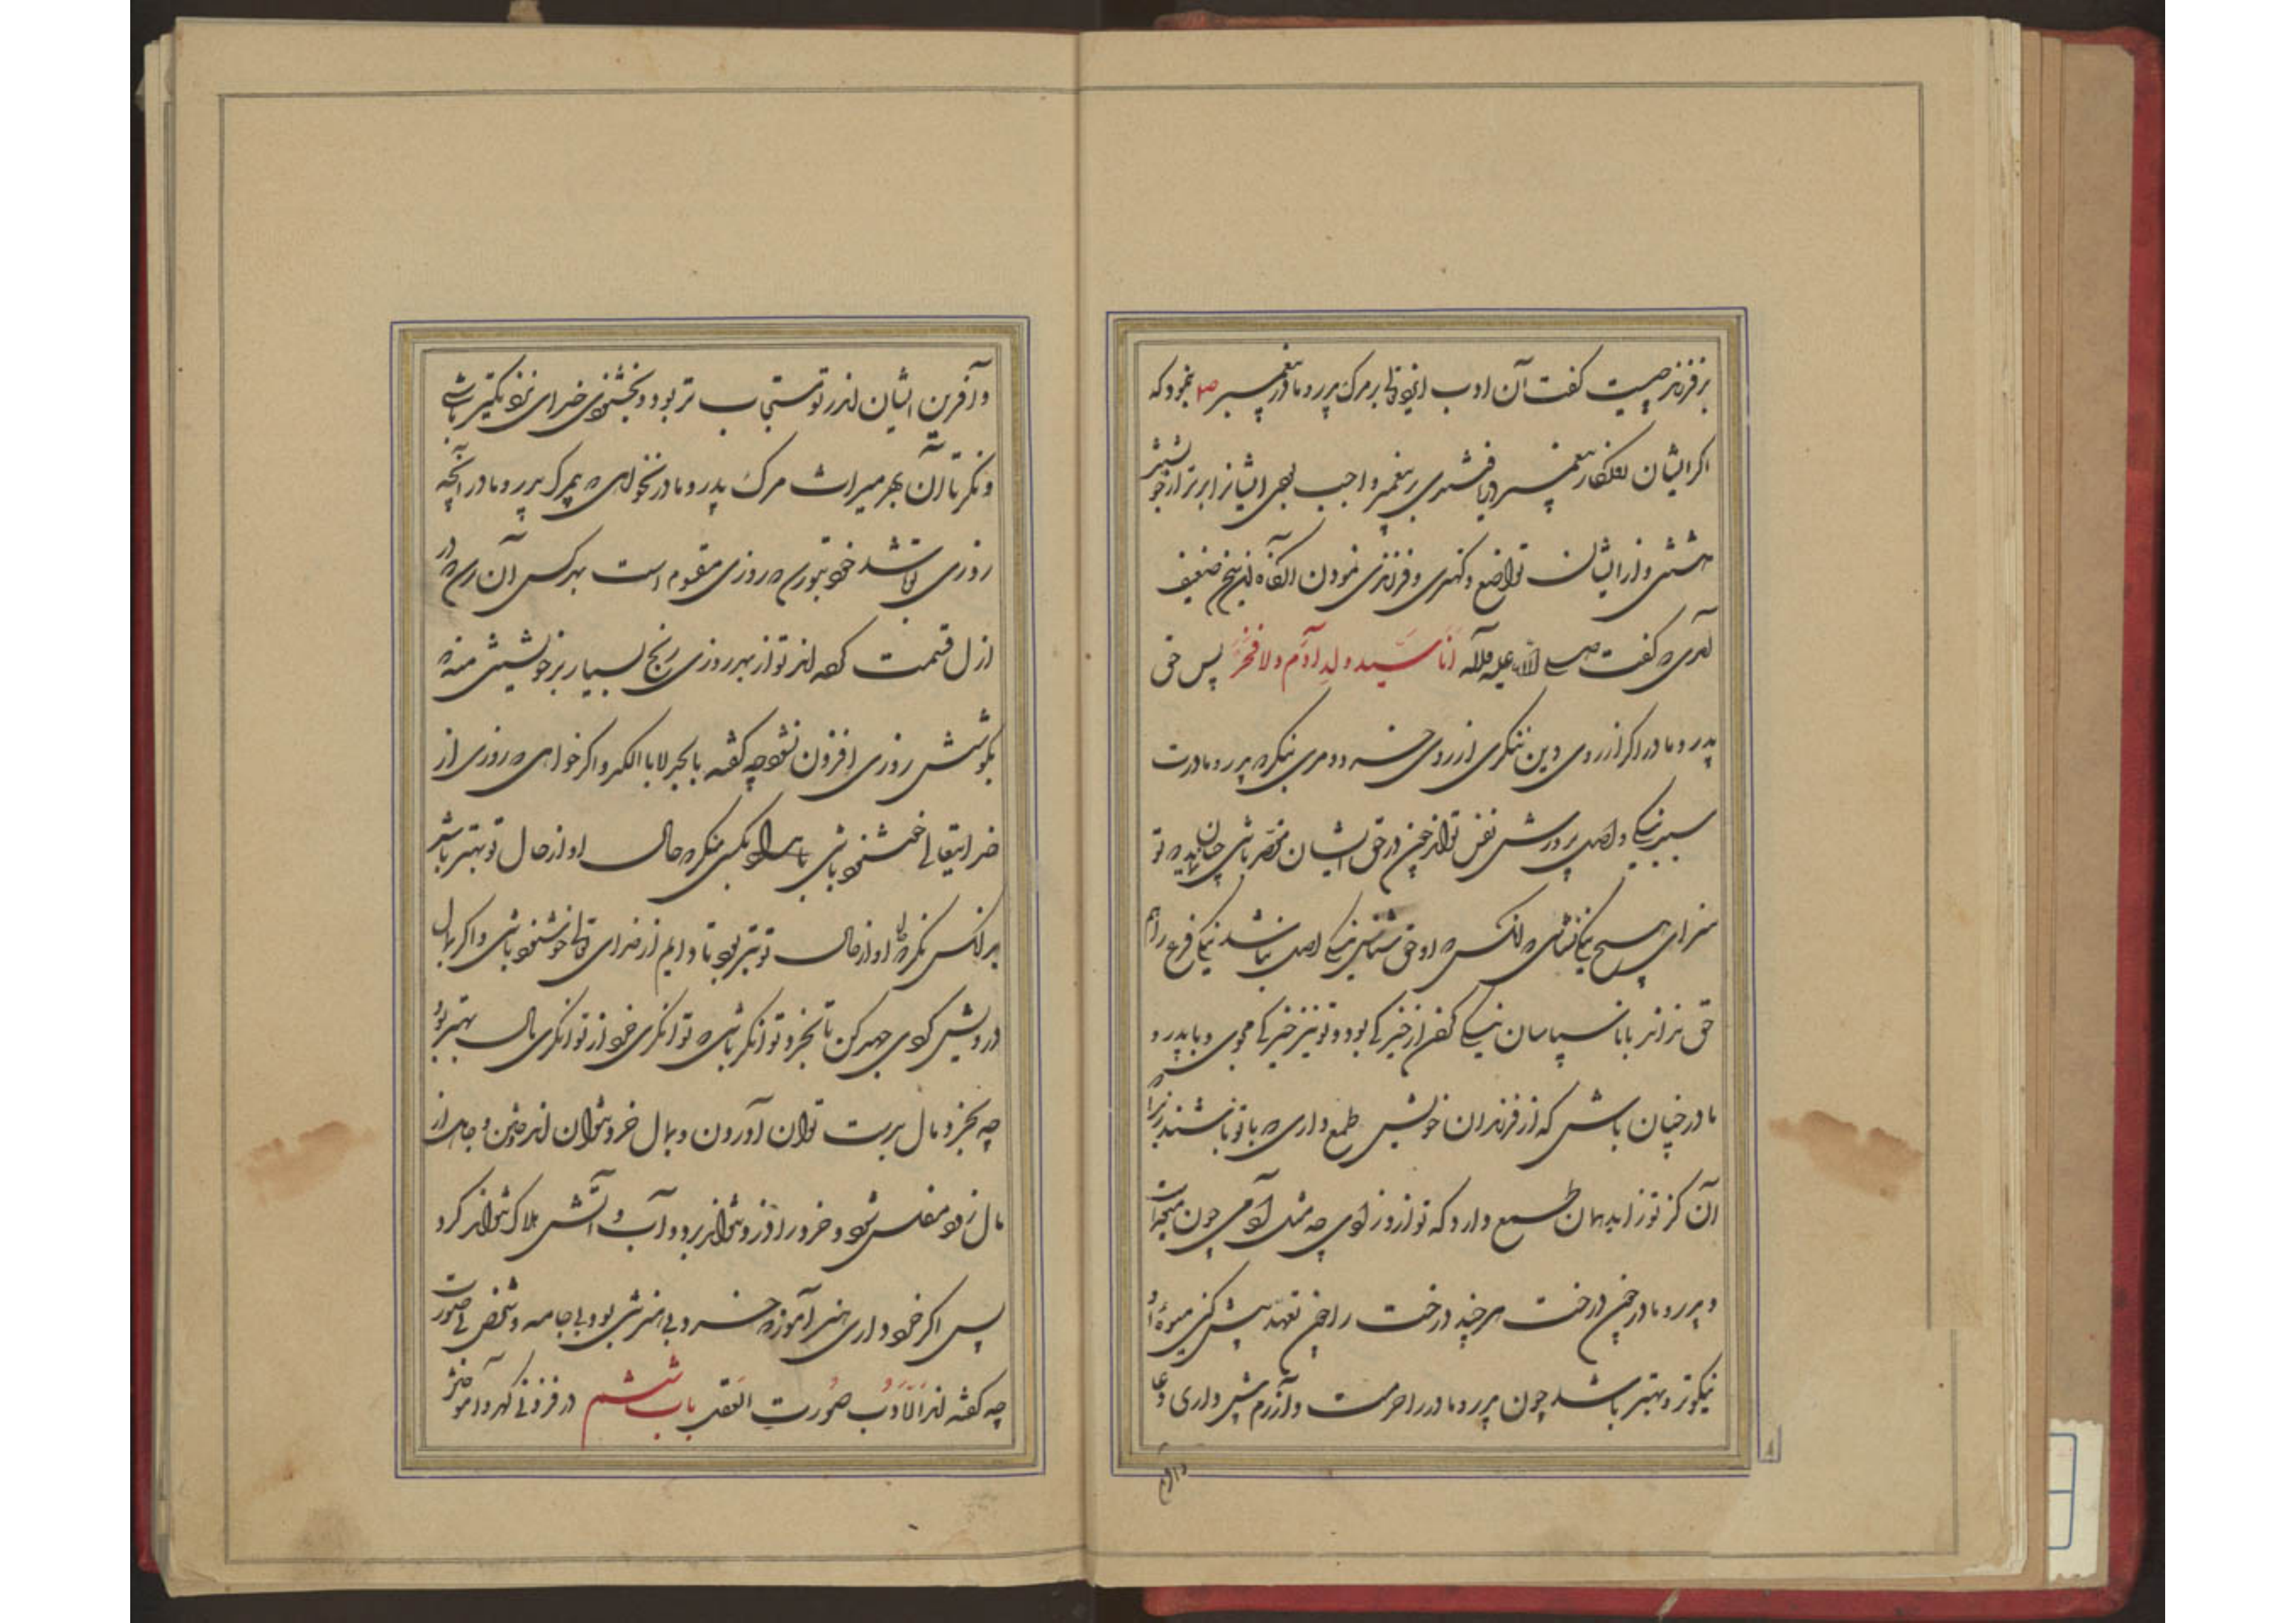 بر فرزند چیست گفت آن ادب ایزد تعالی بر مرک پدر و مادر پیغمبر ص بنمود که
اگر ایشان روزکار پیغمبر دریافتندی بر پیغمبر واجب بودی ایشانرا برتر از خویشتن
داشتن و از ایشان تواضع و کهتری و فرزندی نمودن آنگاه این سخن ضعیف
آمدی که گفت صلی الله علیه وآله انا سید ولد آدم ولا فخر پس حق
پدر و مادر اگر از روی دین ننگری از روی خرد و مردمی بنگر که پدر و مادرت
سبب نیکی و اصل پرورش نفس تواند چون در حق ایشان مقصر باشی چنان نماید که تو
سزای هیچ نیکی نباشی که آنکس که او حق شناس نیکی اصل نباشد نیکی فرع را هم
حق نداند با ناسپاسان نیکی کردن از خیرگی بود و تو نیز خیرگی مجوی و با پدر و
مادر چنان باش که از فرزندان خویش طمع داری که با تو باشند زیرا
آن کز تو زاید همان طمع دارد که تو ازو زادی چه مثل آدمی چون میوه است
و پدر و مادر چون درخت هر چند درخت را چون تعهد بیش کنی میوهٔ او
نیکوتر و بهتر باشد چون پدر و مادر را حرمت و آزرم بیش داری دعا
و آفرین
و آفرین ایشان اندر تو مستجاب تر بود و بخشنودی خدای نزدیکتر باشی
و نگر تا از بهر میراث مرک پدر و مادر نخواهی که بی مرک پدر و مادر آنچه
روزی تو باشد خود بتو رسد که روزی مقسوم است بهر کس آن رسد که در
ازل قسمت کرده اند تو از بهر روزی رنج بسیار بر خویشتن منه که
بکوشش روزی افزون نشود چه گفته اند بالجد لا بالکد و اگر خواهی که روزی از
خدایتعالی خشنود باشی بکسی منگر که حال او از حال تو بهتر باشد
بر آنکس نگر که حال او از حال تو بتر بود تا دایم از خدای تعالی خوشنود باشی و اگر بمال
درویش گردی جهد کن تا بخرد توانگر باشی که توانگری خرد از توانگری مال بهتر بود
چه بخرد مال بدست توان آوردن و بمال خرد نتوان اندوختن و جاهل از
مال زود مفلس شود و خرد را دزد نتواند برد و آب و آتش هلاک نتواند کرد
پس اگر خرد داری هنر آموز که خرد بی هنر تنی بود بی جامه و شخص بی صورت
چه گفته اند الادب صورت العقل باب ششم در فزونی گهر و آموختن هنر